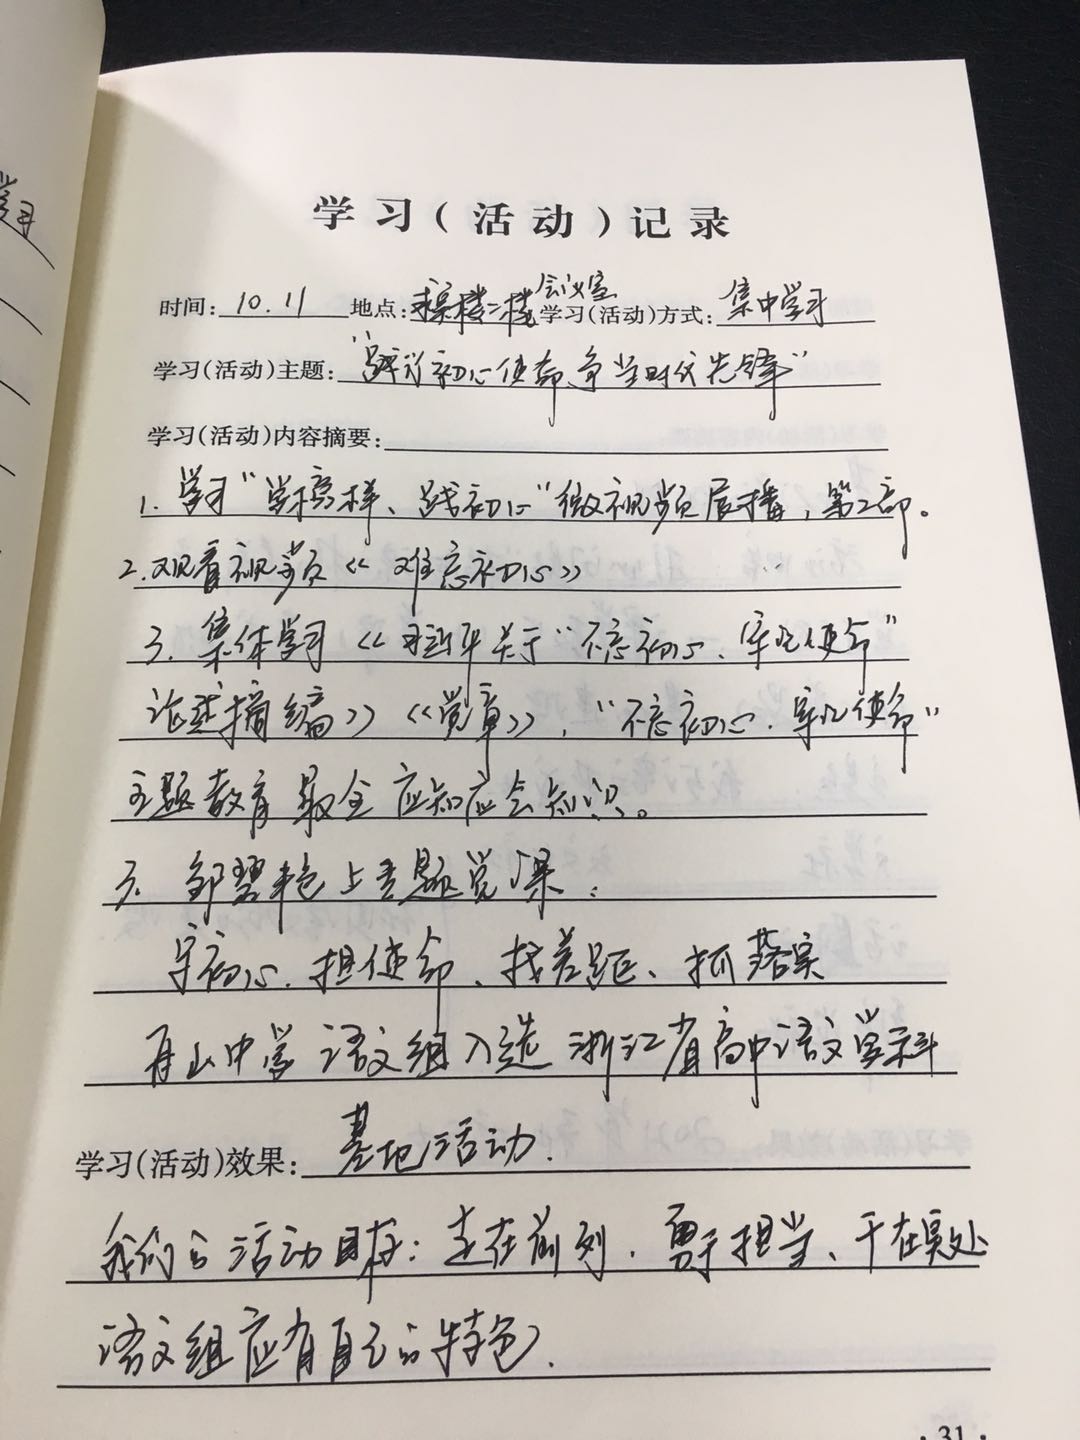 学习
学习（活动）记录
时间：10.11 地点：楼二楼会议室 学习（活动）方式：集中学习
学习（活动）主题："践行初心使命 争当时代先锋"
学习（活动）内容摘要：
1. 学习"学榜样、践初心"微视频展播，第2部。
2. 观看视频《难忘初心》
3. 集体学习《习近平关于"不忘初心、牢记使命"
论述摘编》《党章》，"不忘初心、牢记使命"
主题教育最全应知应会知识。
3. 邹碧艳上专题党课：
守初心、担使命、找差距、抓落实
舟山中学语文组入选浙江省高中语文学科
基地活动.
学习（活动）效果：
我们的活动目标：走在前列、勇于担当、干在实处
语文组应有自己的特色.
·31·